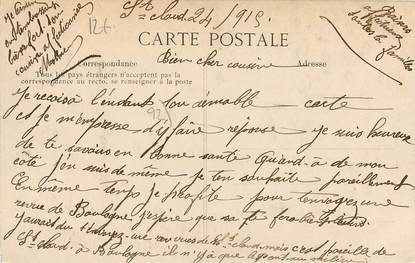 St-claud 24/915
CARTE POSTALE
Bien cher cousin
Correspondance
Adresse
Tous les pays étrangers n'acceptent pas la
correspondance au recto, se renseigner à la poste
Je recois à l'instant ton aimable carte
et je m'empresse d'y faire réponse je suis heureuse
de te savoir en bonne santé Quand-a de mon
coté j'en suis de même je ten souhaite pareillement
En même temps je profite pour t'envoyez une
revue de Boulogne j'espère que sa te fera
j'aurais du t'envoyez-une vues de St-claud mais c'est pareille de
St-claud à Boulogne il n'y a que le pont